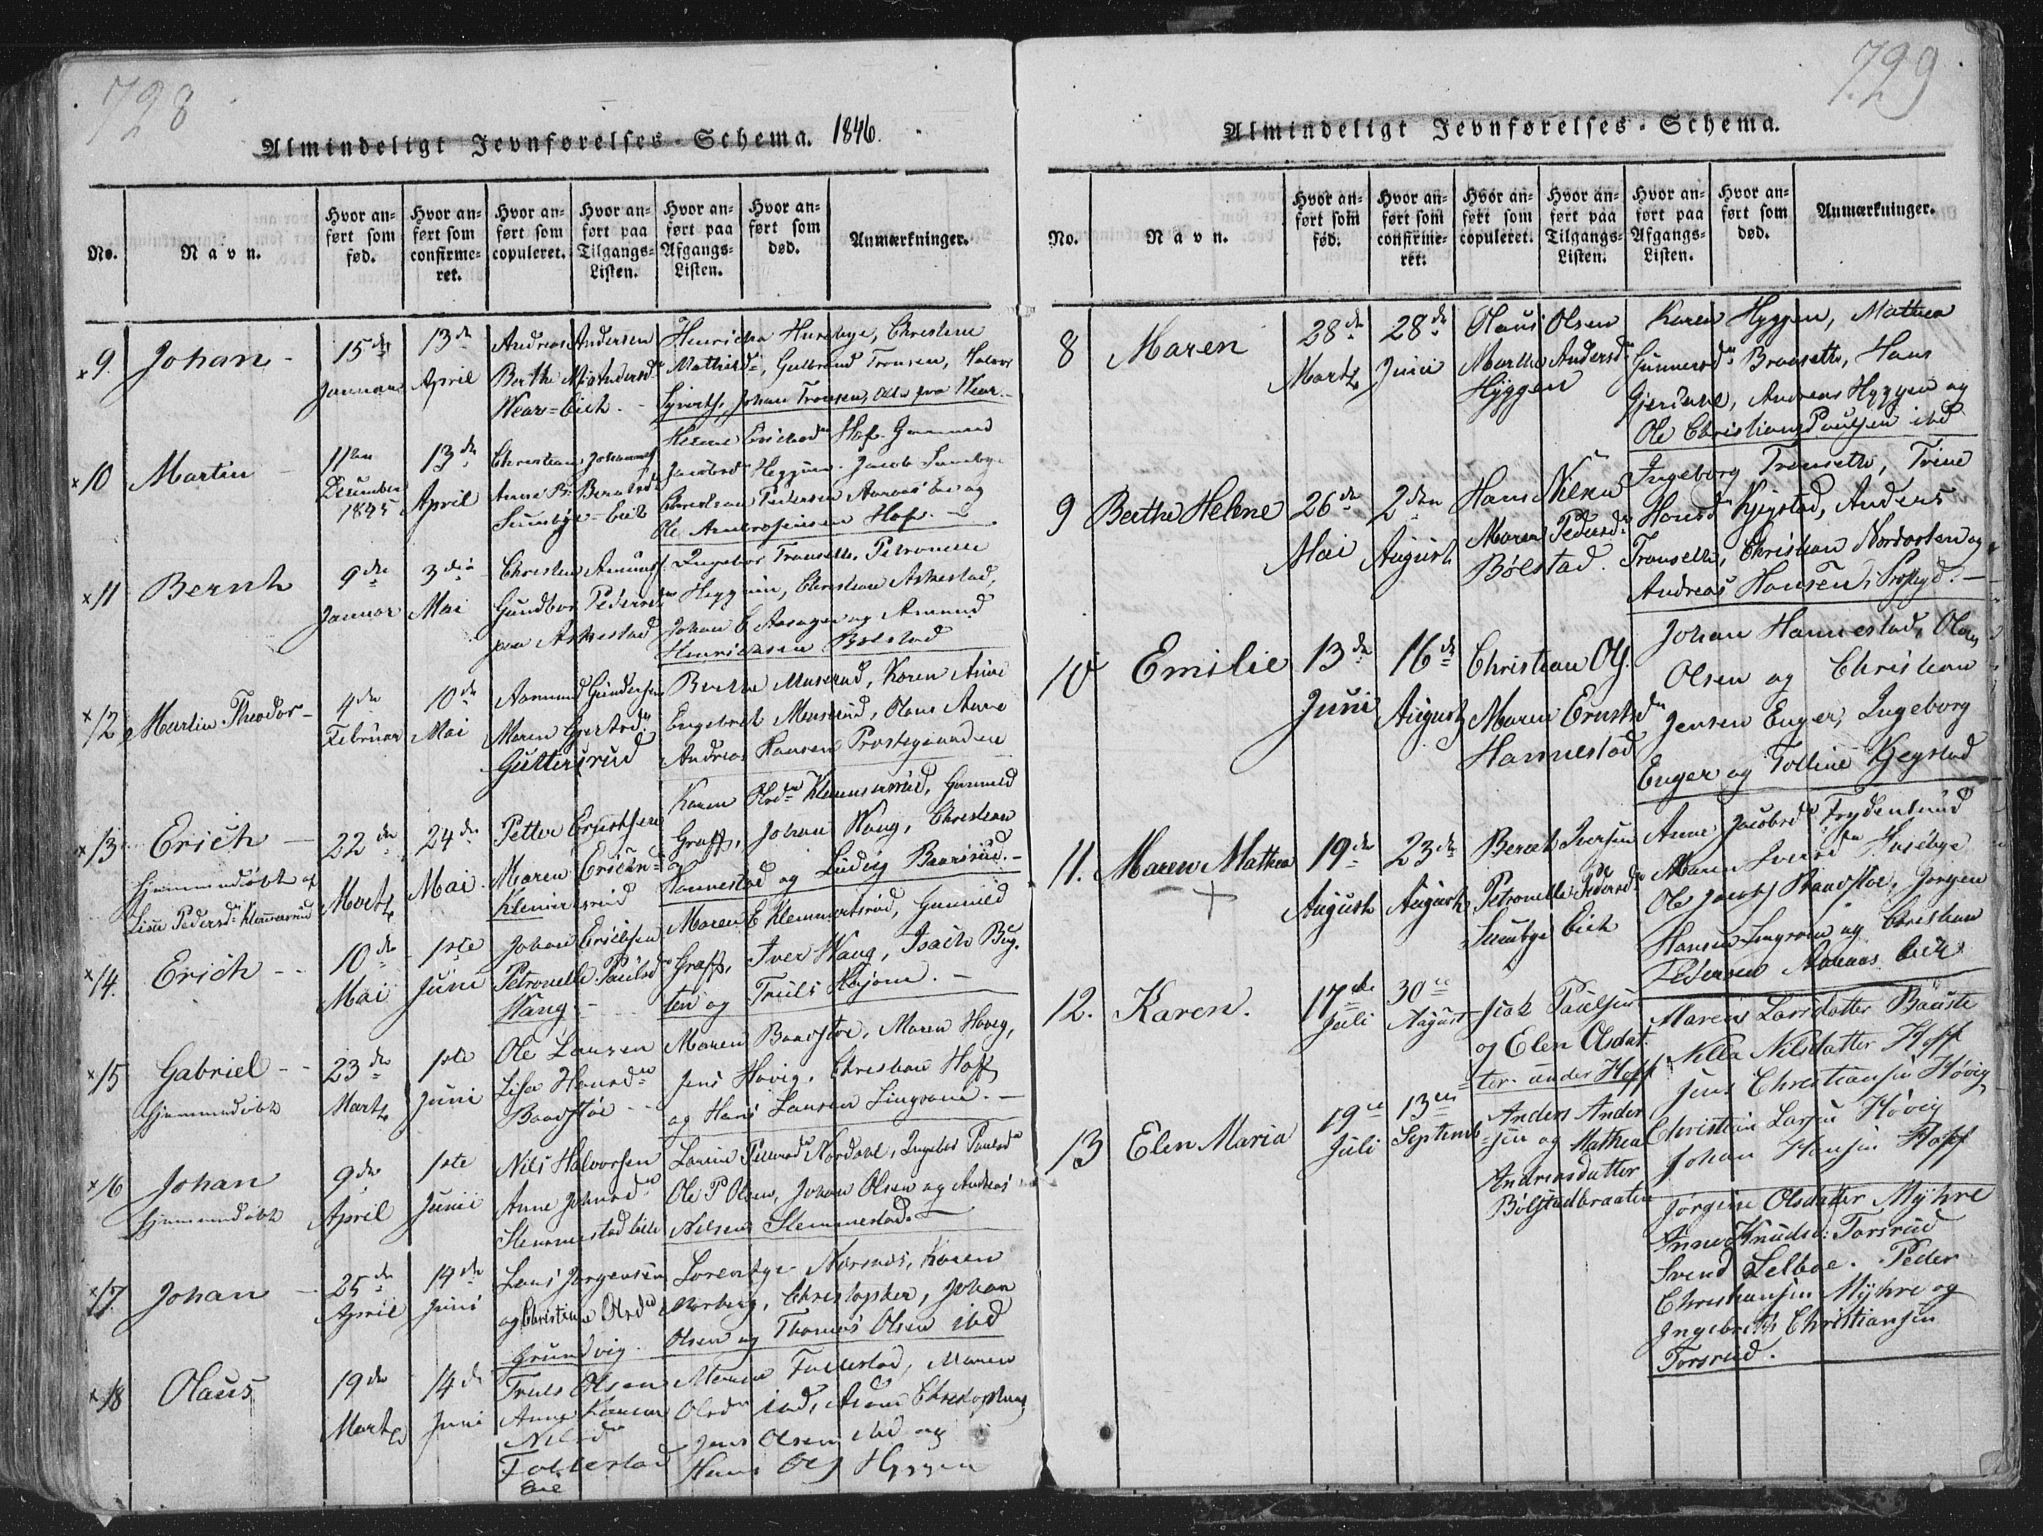 728
Almindeligt Jevnførelses-Schema. 1846.
No.
Navn.
Hvor anført som fød.
Hvor anført som confirmeret.
Hvor anført som copuleret.
Hvor anført paa Tilgangs-Listen.
Hvor anført paa Afgangs-Listen.
Hvor anført som død.
Anmærkninger.
9. Johan
15de Januar
13de April
Andreas Andersen
Berthe Andersd
Henricha Huseby, Christine
Gulbrand Tronsen,
Johan Tronsen, Ole fra
10 Martin
11te December 1845
13de April
Christian Johannes
Anne Berntsd
Sundbye-Eie
Helene Erichsd Hof. Gunnild
Jacobsd Heggum. Jacob Sundbye
Christian Pedersen Aaraas Eie og
Ole Ambrosiussen Hof.
11 Bernt
9de Januar
3die Mai
Christen Amunds
Gundbor Pedersd
paa Askestad
Ingebor Transette, Petronelle
Heggum, Christian Askestad,
Johan E Aasagen og Amund
Henrichsen Bølstad
12 Martin Theodor
4de Februar
10de Mai
Aamund Gundersen
Maren Gjertsd
Guttersrud
Berthe Muserud, Karen Anne
Engebret Muserud, Claus Anne
Andreas Hansen Prestegaarden
13 Erich
Hjemmendøbt af
Lise Pedersd Klemmersrud
22de Martz
24de Mai
Petter Ernstsen
Maren Erichsd
Klemmersrud
Karen Olsd Klemmersrud, Gunnild
Graff, Johan Wang, Christian
Hannestad og Ludvig Baarsrud.
14. Erich
10de Mai
1ste Juni
Johan Erichsen
Petronelle Paulsd
Wang
Maren E Klemmertsrud, Gunnild
Graff, Iver Wang, Isach Big-
ten og Truls Kjøm.
15 Gabriel
Hjemmendøbt
23de Martz
1ste Juni
Ole Larsen
Lisa Hansd
Baadstøe
Maren Baadstøe, Maren Høvig,
Jens Høvig, Christian Hoff
og Hans Larsen Lingsom.
16 Johan
hjemmendøbt
9de April
1ste Juni
Nils Halvorsen
Anne Johnsd
Slemmestad Eie
Lorine Pedersd Nordahl, Ingebor Paulsd
Ole P Olsen, Johan Olsen og Andreas
Nilsen Slemmestad.
17 Johan
25de April
14de Juni
Lars Jørgensen
og Christiane Olsd
Grundvig.
Lorentze Nærsnæs, Karen
Morberg, Christopher, Johan
Olsen og Thomas Olsen ibd
18 Olaus
19de Martz
14de Juni
Truls Olsen
Anne Karine
Nilsd
Follestad
Eie
Maren Follestad, Maren
Olsd ibd, Christophers
Jens Olsen ibd og
Hans Ols Hyggen
729
Almindeligt Jevnførelses-Schema.
No.
Navn.
Hvor anført som fød.
Hvor anført som confirmeret.
Hvor anført som copuleret.
Hvor anført paa Tilgangs-Listen.
Hvor anført paa Afgangs-Listen.
Hvor anført som død.
Anmærkninger.
8 Maren
28de Martz
28de Juni
Olaus Olsen
Marthe Andersd
Hyggen
Karen Hyggen, Mathea
Gunnersd Braasette, Hans
Gjerdahl, Andreas Hyggen og
Ole Christian Poulsen ibd
9 Berthe Helene
26de Mai
2den August
Hans Nilsen
Maren Pedersd
Bølstad.
Ingeborg Transette, Trine
Hansd Kjegstad, Anders
Transette, Christian Nordarten og
Andreas Hansen i Prstgd.
10 Emilie
13de Juni
16de August
Christian Ols.
Maren Ernstsd
Hannestad
Johan Hannestad, Olaus
Olsen og Christian
Jensen Enger, Ingeborg
Enger og Tolline Kjegstad
11. Maren Mathea
19de August
23de August
Bernt Iversen
Petronelle Pedersd
Sundbye Eie
Anne Jacobsd Frydenlund
Maren Iversd fra Husebye
Ole Jacobs Baadstøe, Jørgen
Hansen Lingsom og Christian
Pedersen Aaraas Eie.
12. Karen.
17de Juli
30te August
Isak Paulsen
og Elen Olsdat-
ter under Hoff
Maren Larsdatter Baaste
Nilla Nilsdatter Hoff
Jens Christiansen Høvig
Christian Larsen Høvig
Johan Hansen Hoff
13 Elen Maria
19de Juli
13de Septemb
Anders Ander-
sen og Mathea
Andreasdatter
Bølstadbraaten
Jørgine Olsdatter Myhre
Anne Knudsd: Torsrud
Svend Selboe. Peder
Christiansen Myhre og
Ingebreth Christiansen
Torsrud.